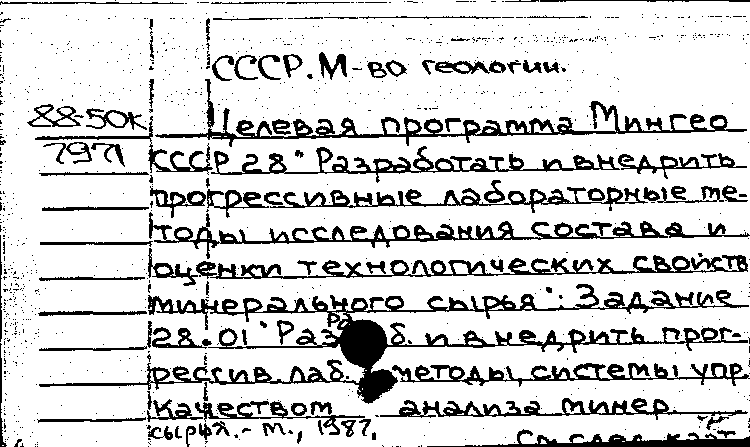 СССР. М-во геологии.
88-50К
Целевая программа Мингео
7971
СССР 28 "Разработать и внедрить
прогрессивные лабораторные ме-
тоды исследования состава и
оценки технологических свойств
минерального сырья": Задание
28.01 "Разраб. и внедрить прог-
рессив. лаб. методы, системы упр.
качеством анализа минер.
сырья. - М., 1987.
См. след. карт.